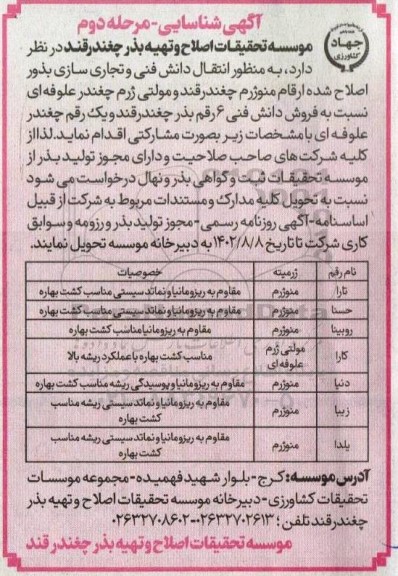 آگهی شناسایی-مرحله دوم
جهاد
کشاورزی
موسسه تحقیقات اصلاح و تهیه بذر چغندرقند در نظر
دارد، به منظور انتقال دانش فنی و تجاری سازی بذور
اصلاح شده ارقام منوژرم چغندرقند و مولتی ژرم چغندر علوفه ای
نسبت به فروش دانش فنی ۶ رقم بذر چغندرقند و یک رقم چغندر
علوفه ای با مشخصات زیر بصورت مشارکتی اقدام نماید. لذا از
کلیه شرکت های صاحب صلاحیت و دارای مجوز تولید بذر از
موسسه تحقیقات ثبت و گواهی بذر و نهال درخواست می شود
نسبت به تحویل کلیه مدارک و مستندات مربوط به شرکت از قبیل
اساسنامه-آگهی روزنامه رسمی-مجوز تولید بذر و رزومه و سوابق
کاری شرکت تا تاریخ ۱۴۰۲/۸/۸ به دبیرخانه موسسه تحویل نمایند.
نام رقم ژرمیته خصوصیات
تارا منوژرم مقاوم به ریزومانیا و نماتد سیستی مناسب کشت بهاره
حسنا منوژرم مقاوم به ریزومانیا و نماتد سیستی مناسب کشت بهاره
روبینا منوژرم مقاوم به ریزومانیا مناسب کشت بهاره
کارا مولتی ژرم علوفه ای مناسب کشت بهاره با عملکرد ریشه بالا
دنیا منوژرم مقاوم به ریزومانیا و پوسیدگی ریشه مناسب کشت بهاره
زیبا منوژرم مقاوم به ریزومانیا و نماتد سیستی ریشه مناسب
کشت بهاره
یلدا منوژرم مقاوم به ریزومانیا و نماتد سیستی ریشه مناسب
کشت بهاره
آدرس موسسه: کرج-بلوار شهید فهمیده-مجموعه موسسات
تحقیقات کشاورزی-دبیرخانه موسسه تحقیقات اصلاح و تهیه بذر
چغندرقند تلفن: ۰۲۶۳۲۷۰۲۶۱۳-۰۲۶۳۲۷۰۸۶۰۲
موسسه تحقیقات اصلاح و تهیه بذر چغندر قند